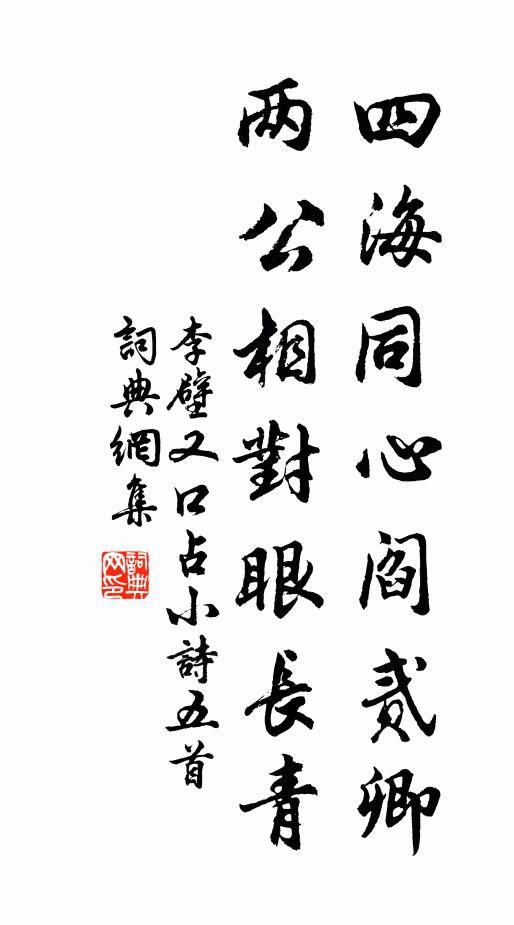 四海同心閻貳卿
两公相對眼長青
李壁又口占小詩五首
詞典網集
詞典网印